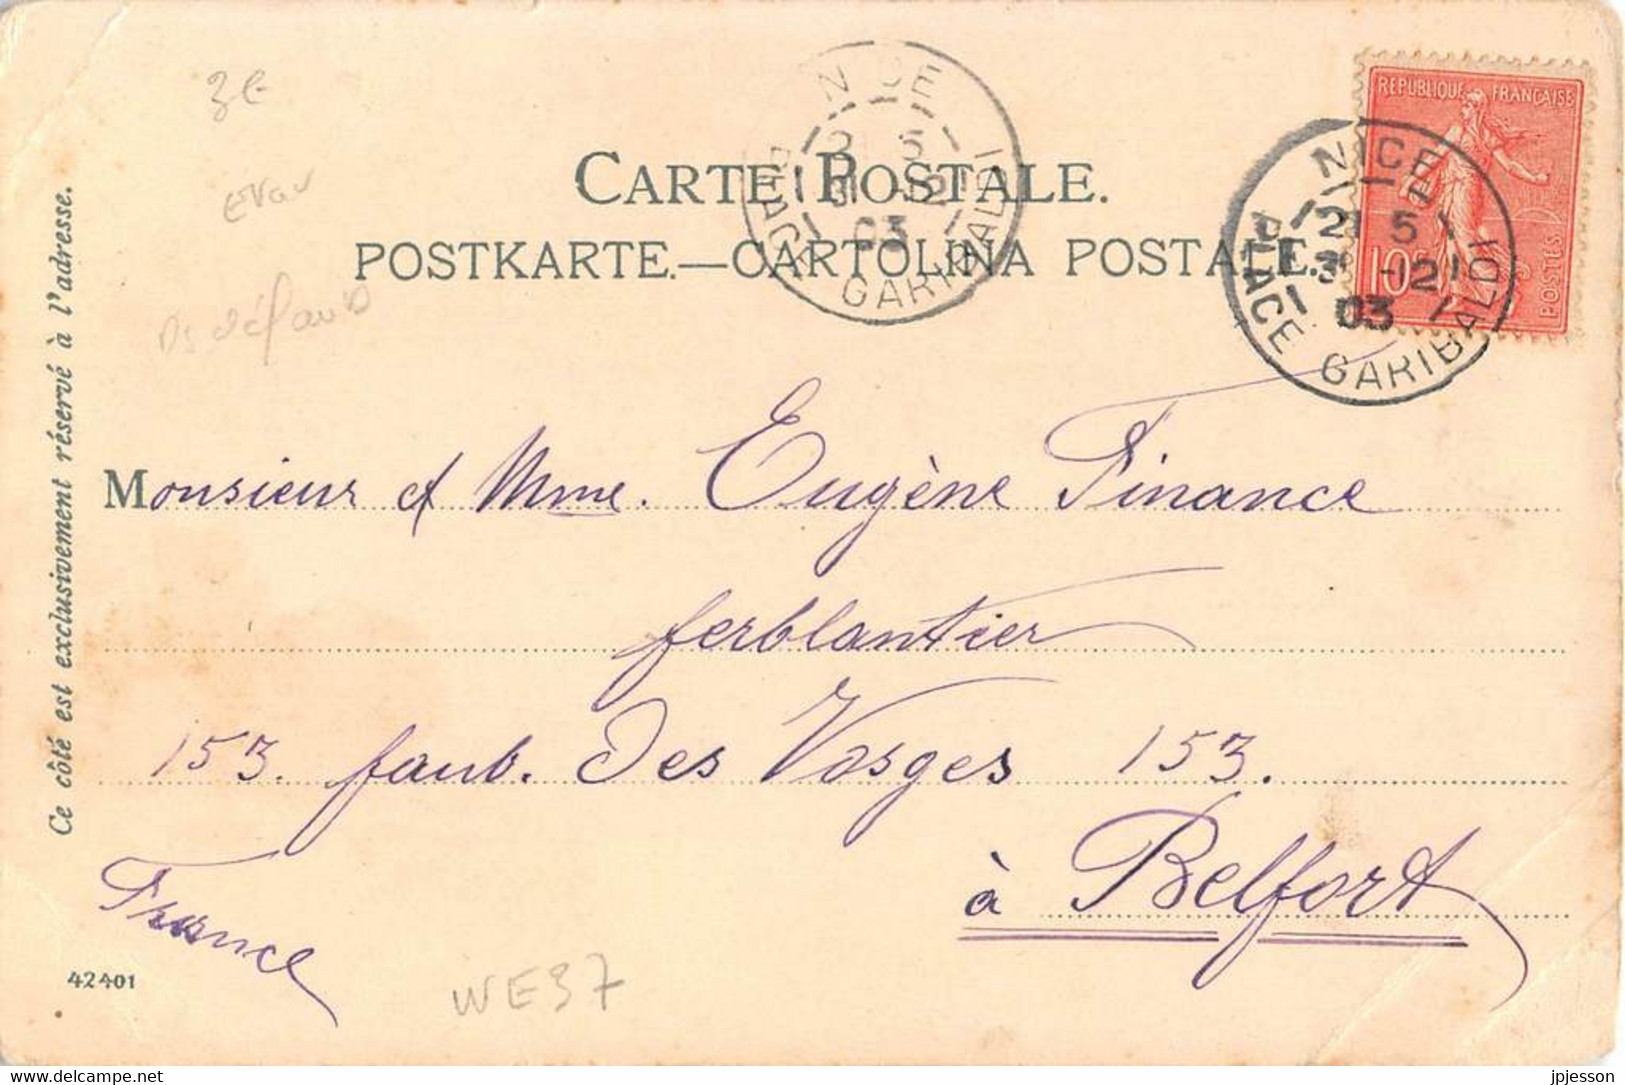 3€
Evav
Ds défauts
CARTE POSTALE.
POSTKARTE.—CARTOLINA POSTALE.
NICE
21 5
31 -12
03
PLACE GARIBALDI
REPUBLIQUE FRANÇAISE
10
POSTES
NICE
21 5
31 -12
03
PLACE GARIBALDI
Ce côté est exclusivement réservé à l'adresse.
Monsieur et Mme. Eugène Finance
ferblantier
153. faub. des Vosges 153.
à Belfort
France
42401
WE37
delcampe.net
jpjesson